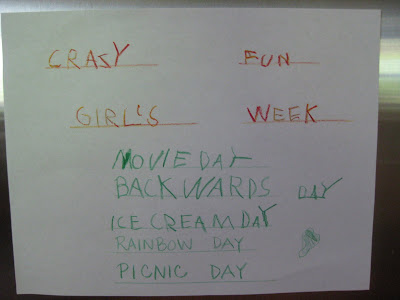 CRAZY FUN
GIRL'S WEEK
MOVIE DAY
BACKWARDS DAY
ICE CREAM DAY
RAINBOW DAY
PICNIC DAY